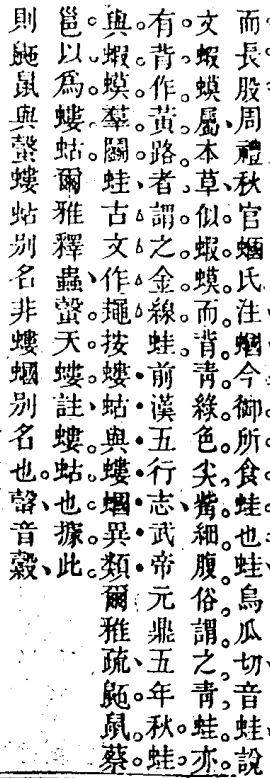 而長股周禮秋官蟈氏注蟈今御所食蛙也蛙烏瓜切音蛙說
文蝦蟆屬本草似蝦蟆而背青綠色尖觜細腹俗謂之青蛙亦
有背作黃路者謂之金線蛙前漢五行志武帝元鼎五年秋蛙
與蝦蟆羣鬭蛙古文作䵷按螻蛄與螻蟈異類爾雅疏鼫鼠蔡
邕以爲螻蛄爾雅釋蟲螜天螻註螻蛄也據此
則鼫鼠與螜螻蛄別名非螻蟈別名也螜音縠